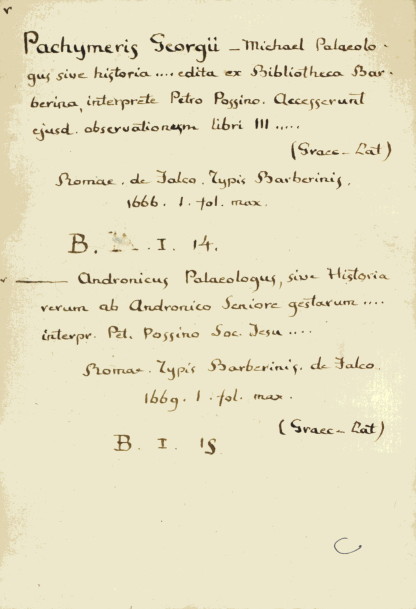 Pachymeris Georgii – Michael Palaeolo-
gus sive historia .... edita ex Bibliotheca Bar-
berina, interprete Petro Possino. Accesserunt
ejusd. observationum libri III .....
(Graec-Lat)
Romae. de Falco. Typis Barberinis.
1666. 1. fol. max.
B. I. 14.
— Andronicus Palaeologus, sive Historia
rerum ab Andronico Seniore gestarum ....
interpr. Pet. Possino Soc. Jesu ....
Romae. Typis Barberinis. de Falco.
1669. 1. fol. max.
(Graec-Lat)
B. I. 15